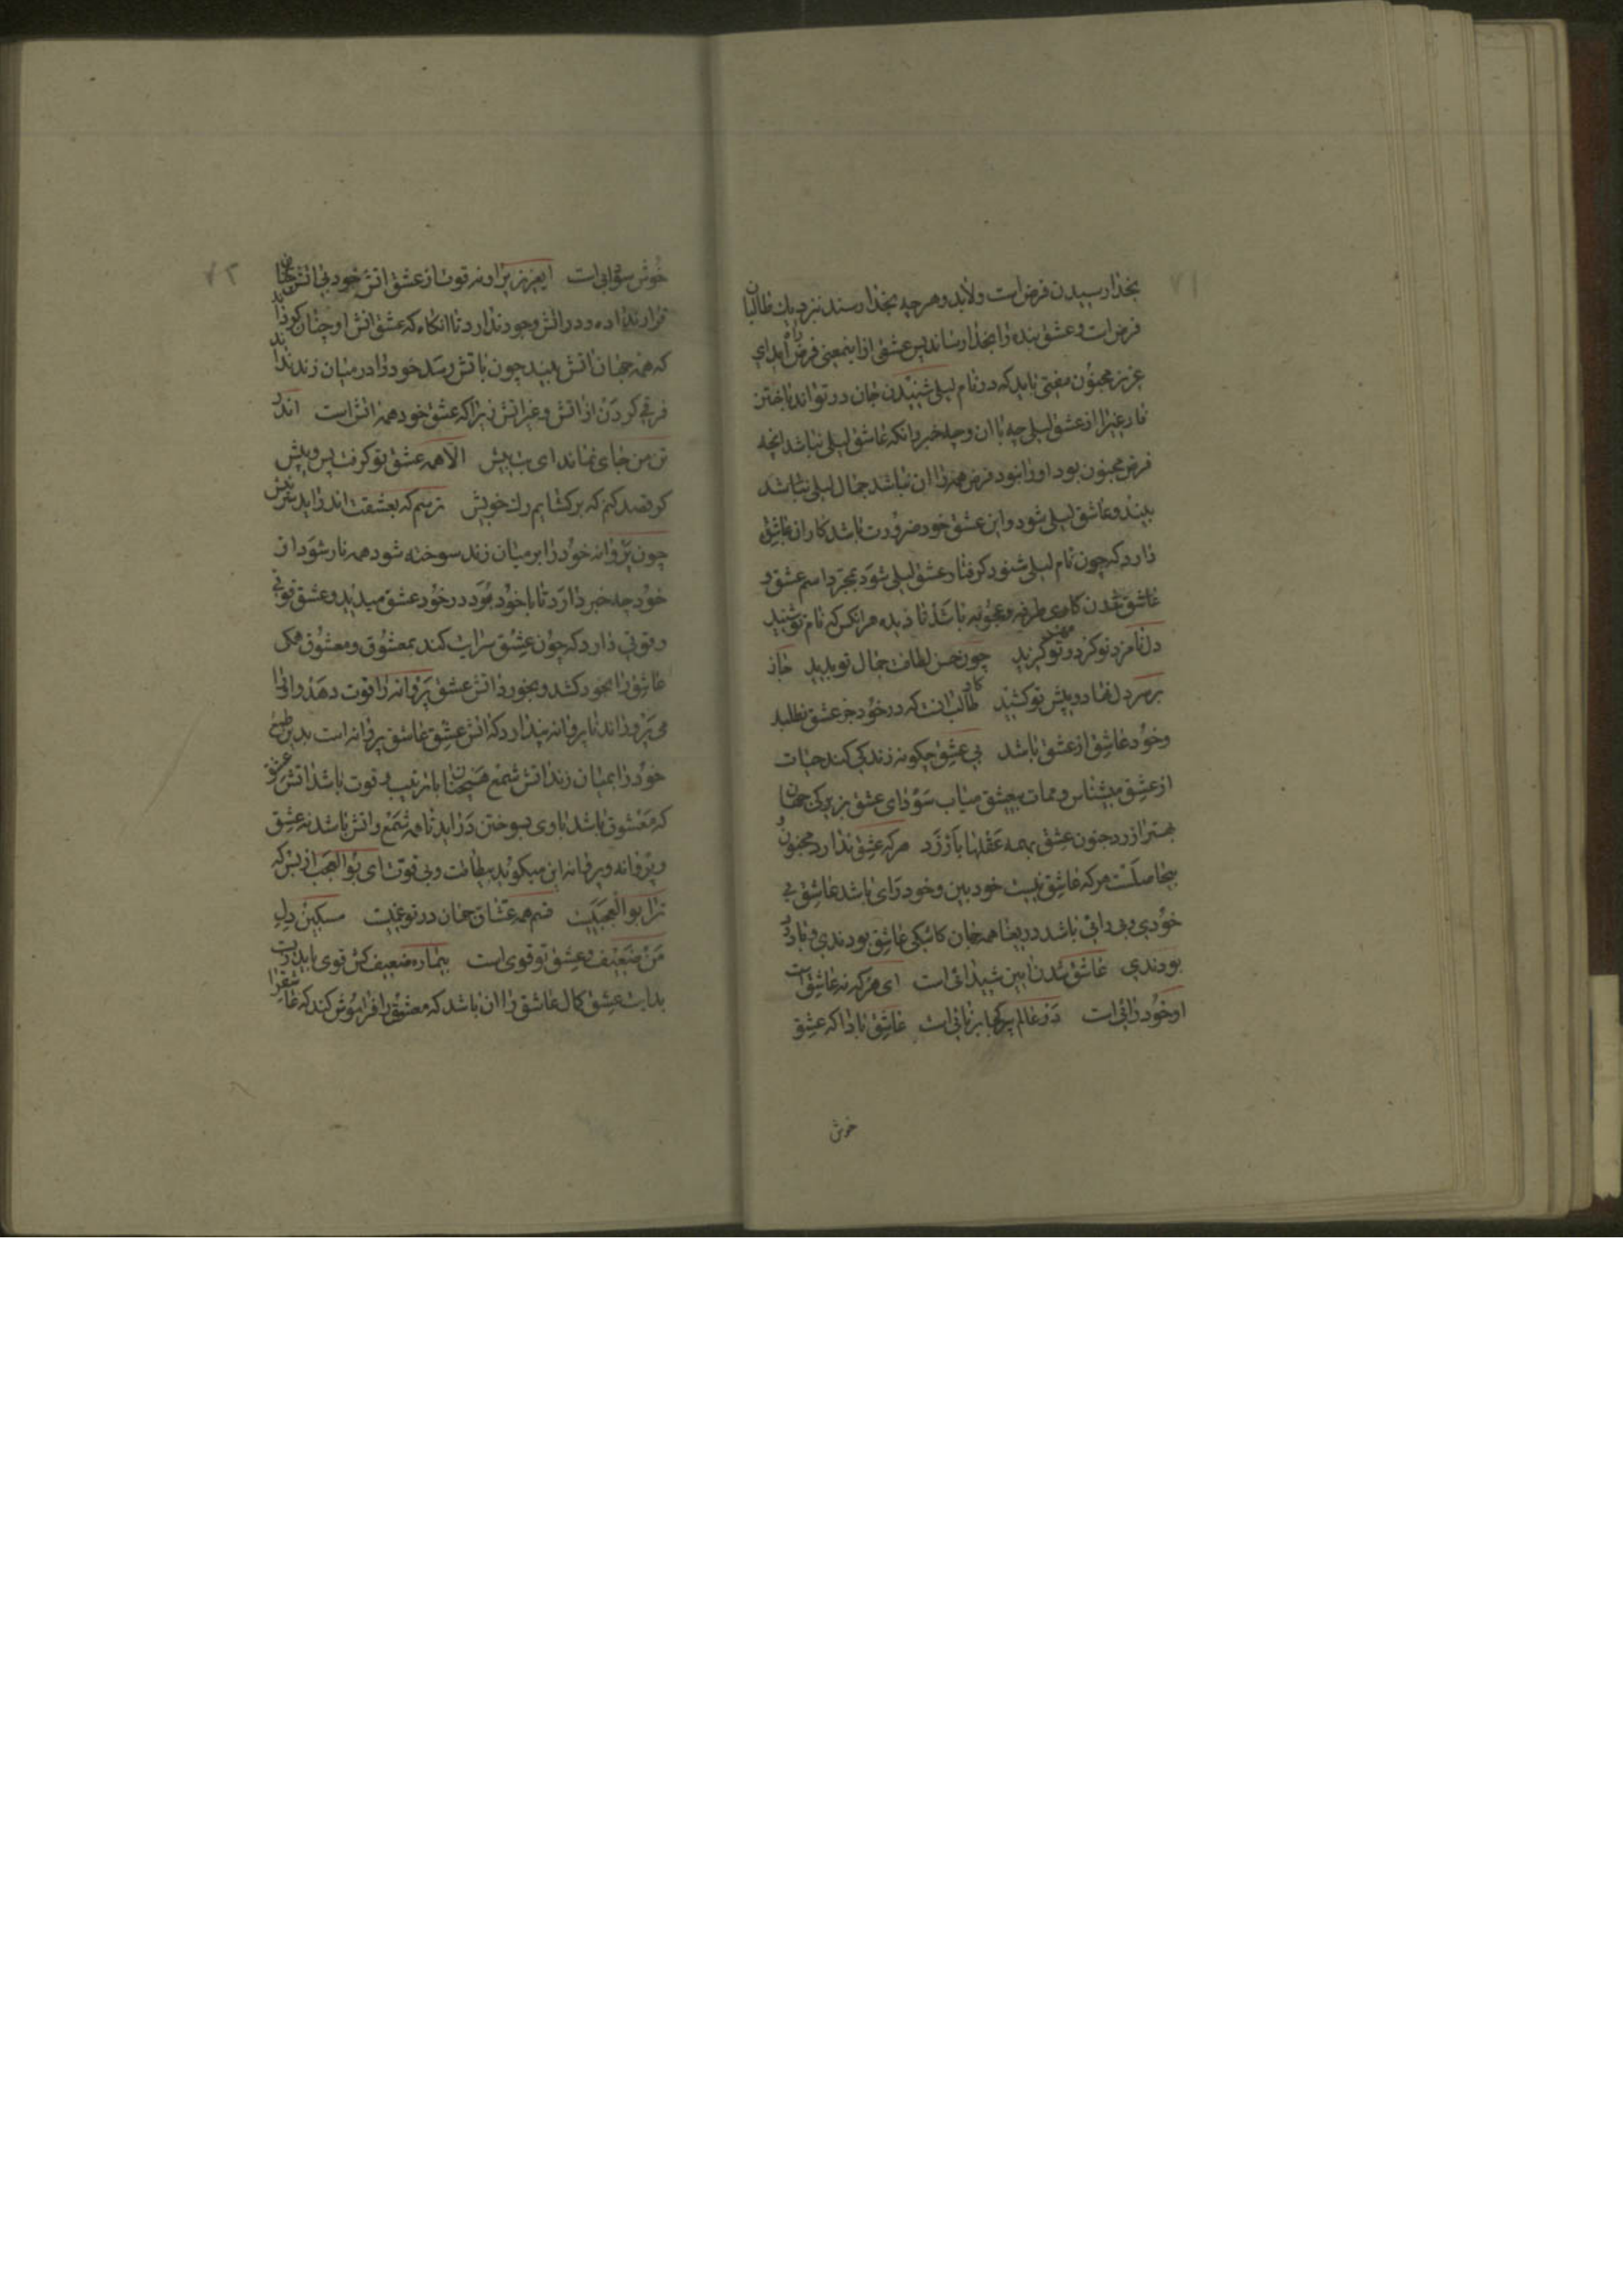 ۷۱
بخدا رسیدن فرض است ولابد وهرچه بخدا رسند نزدیك طالبان
فرض است وعشق بنده را بخدا رساند پس عشق از اینمعنی فرض راه آمد ای
عزیز مجنون صفتی باید که در نام لیلی شنیدن جان در تواند باختن
فارغ را از عشق لیلی چه باك وچه خبر وانکه عاشق لیلی نباشد انچه
فرض مجنون بود اورا نبود فرض همه را ان نباشد جمال لیلی نباشد
بیند وعاشق لیلی شود واین عشق خود ضرورت باشد کار ان عاشق
دارد که چون نام لیلی شنود کرفتار عشق لیلی شود بمجرد اسم عشق و
عاشق شدن کاری طرفه واعجوبه باشد نا دیده هر انکس که نام تو شنید
دل نامزد تو کرد ومهر تو کزید چون حسن لطافت جمال تو بدید جان
بر سر دل نهاد وپیش تو کشید کار طالب انست که در خود جز عشق نطلبد
وخود عاشق از عشق باشد بی عشق چکونه زندکی کند حیات
از عشق میشناس وممات بیعشق میاب سودای عشق از زیرکی جهان
بهتر ارزد وجنون عشق بر همه عقلها باز زد هر که عشق ندارد مجنون و
بیحاصلست هر که عاشق نیست خودبین وخود رای باشد عاشق بی
خودی وبی رائی باشد دریغا همه جهان کاشکی عاشق بودندی وبا درد
بودندی عاشق شدن ایین شیدائی است ای هر که نه عاشق است
او خود رائی است در عالم پیر کجا برنائی است عاشق بادا که عشق
خوش
۷۲
خوش سودائی است ایعزیز پروانه قوت از عشق اتش خورد بی اتش چنان
قرار ندارد ودر اتش وجود ندارد تا انکاه که عشق اتش او چنان کرداند
که همه جهان اتش بیند چون باتش رسد خود را در میان زند نداند
فرقی کردن از اتش وغیر اتش زیرا که عشق خود همه اتش است اندر
تن من جای نماند ای بت بیش الا همه عشق تو کرفت پس وپیش
کر قصد کنم که برکشایم رك خویش ترسم که بعشقت اندر اید سر نیش
چون پروانه خود را بر میان زند سوخته شود همه نار شود از
خود چه خبر دارد تا با خود بود در خود عشق میدید وعشق قوتی
وقوتی دارد که چون عشق سرایت کند بمعشوق ومعشوق همکی
عاشق را بخود کشد وبخورد اتش عشق پروانه را قوت دهد واو را
می پروراند تا پروانه پندارد که اتش عشق عاشق پروانه است بدین طمع
خود را بمیان زند اتش شمع همچنان با ترتیب وقوت باشد اتش عشق
که معشوق باشد با وی بسوختن در اید تا همه شمع واتش باشد نه عشق
وپروانه وپروانه این میکوید بیطاقت وبی قوت ای بوالعجب از بس که
ترا بوالعجبیست فهم همه عشاق جهان در تو غمیست مسکین دل
من ضعیف وعشق تو قوی است بیچاره ضعیف کش قوی باید زیست
بدایت عشق کمال عاشق را ان باشد که معشوق را فراموش کند که عاشقرا